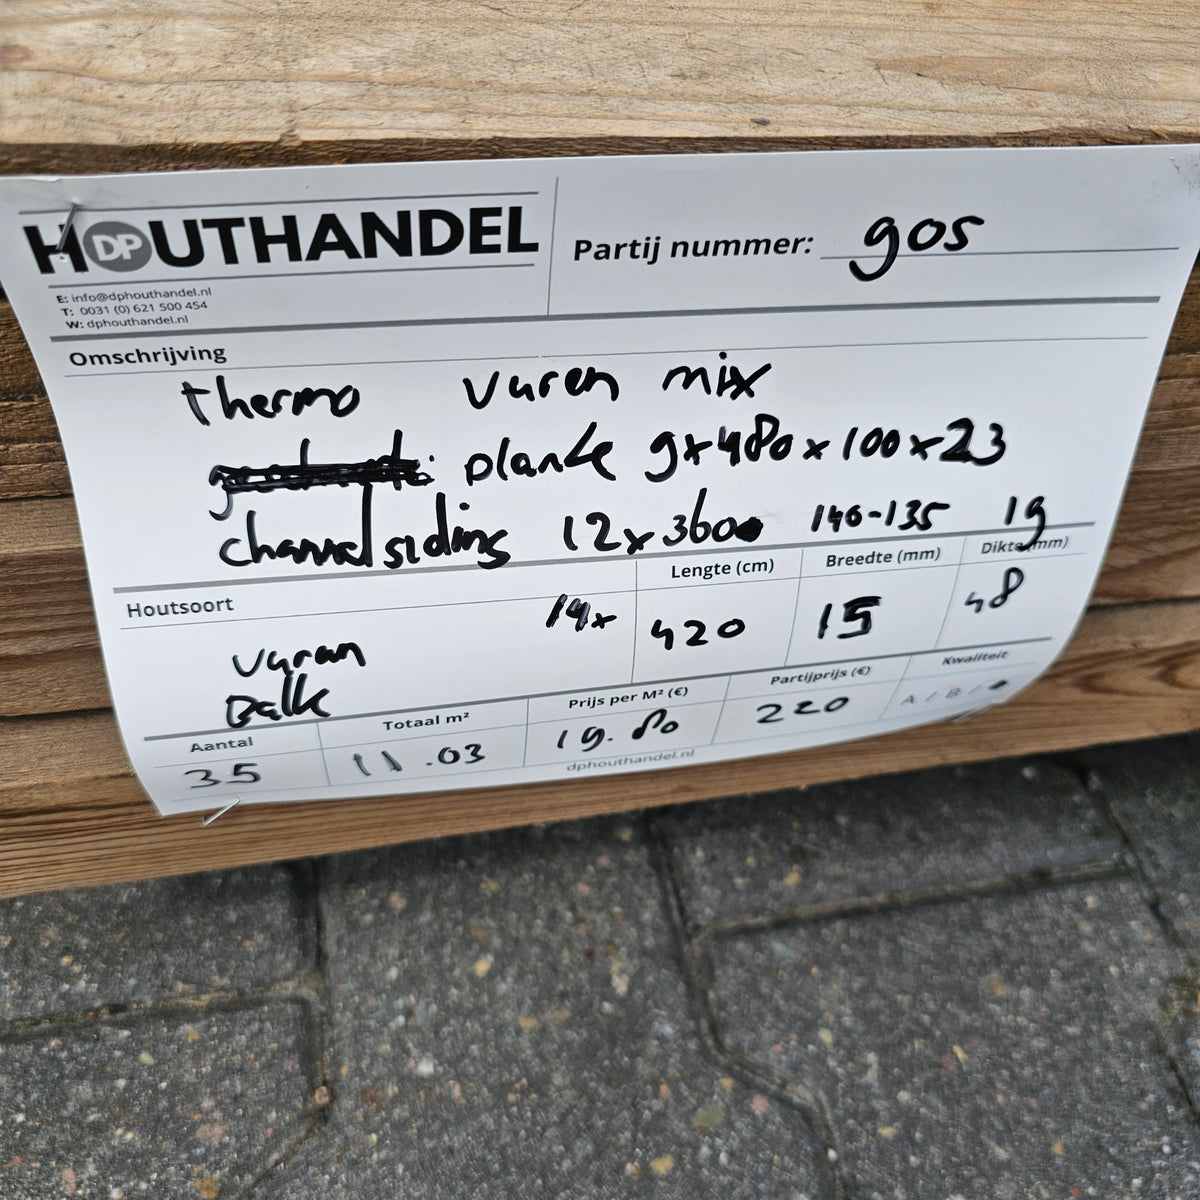 HOUTHANDEL
DP
E: info@dphouthandel.nl
T: 0031 (0) 621 500 454
W: dphouthandel.nl
Partij nummer: 905
Omschrijving
thermo vuren mix
planke 9x480x100x23
channelsiding 12x360 146-135 19
Houtsoort
Lengte (cm)
Breedte (mm)
Dikte (mm)
vuran
Balk
14x
420
15
48
Aantal
Totaal m²
Prijs per M² (€)
Partijprijs (€)
Kwaliteit
35
11.03
19.80
220
A / B /
dphouthandel.nl